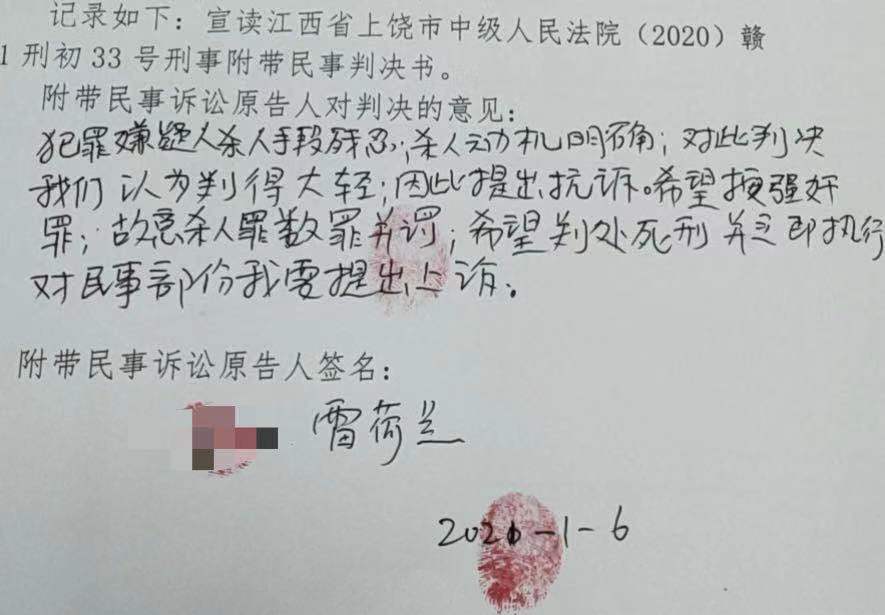 记录如下：宣读江西省上饶市中级人民法院（2020）赣
1 刑初 33 号刑事附带民事判决书。
附带民事诉讼原告人对判决的意见：
犯罪嫌疑人杀人手段残忍；杀人动机明确；对此判决
我们认为判得太轻；因此提出抗诉。希望按强奸
罪；故意杀人罪数罪并罚；希望判处死刑并立即执行
对民事部份我要提出上诉。
附带民事诉讼原告人签名：
雷荷兰
2021-1-6